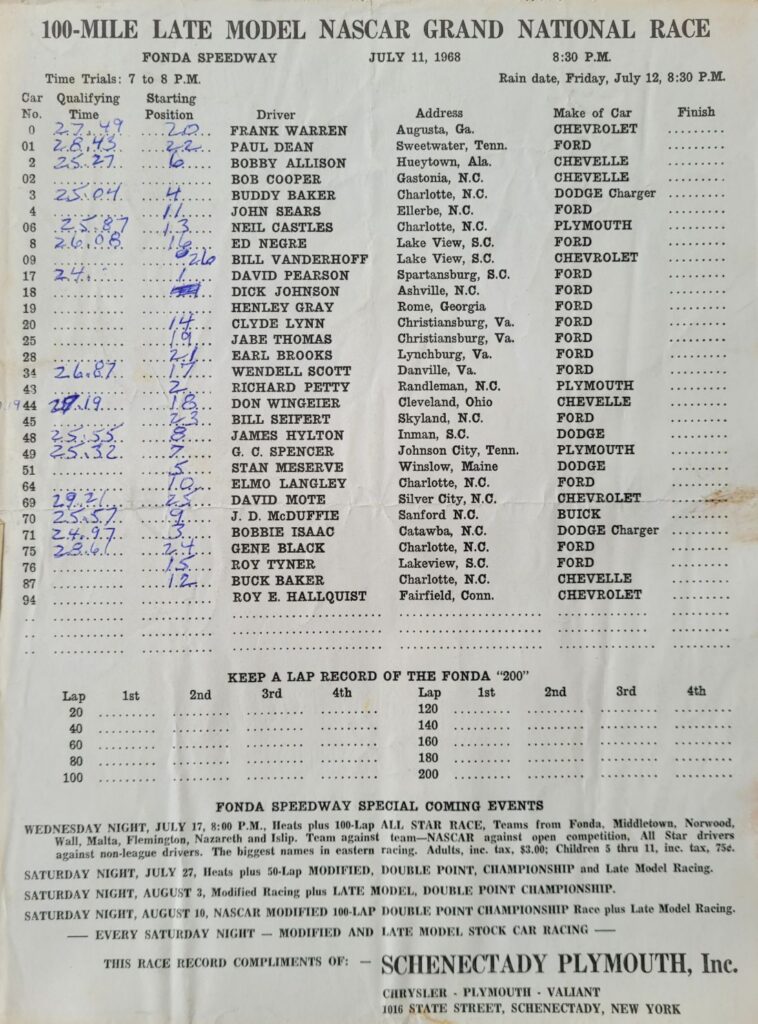 100-MILE LATE MODEL NASCAR GRAND NATIONAL RACE
FONDA SPEEDWAY JULY 11, 1968 8:30 P.M.
Time Trials: 7 to 8 P.M. Rain date, Friday, July 12, 8:30 P.M.
Car No. Qualifying Time Starting Position Driver Address Make of Car Finish
0 27.49 20 FRANK WARREN Augusta, Ga. CHEVROLET
01 28.43 22 PAUL DEAN Sweetwater, Tenn. FORD
2 25.27 6 BOBBY ALLISON Hueytown, Ala. CHEVELLE
02 BOB COOPER Gastonia, N.C. CHEVELLE
3 25.04 4 BUDDY BAKER Charlotte, N.C. DODGE Charger
4 11 JOHN SEARS Ellerbe, N.C. FORD
06 25.87 13 NEIL CASTLES Charlotte, N.C. PLYMOUTH
8 26.08 16 ED NEGRE Lake View, S.C. FORD
09 26 BILL VANDERHOFF Lake View, S.C. CHEVROLET
17 24. 1 DAVID PEARSON Spartansburg, S.C. FORD
18 DICK JOHNSON Ashville, N.C. FORD
19 HENLEY GRAY Rome, Georgia FORD
20 14 CLYDE LYNN Christiansburg, Va. FORD
25 19 JABE THOMAS Christiansburg, Va. FORD
28 21 EARL BROOKS Lynchburg, Va. FORD
34 26.87 17 WENDELL SCOTT Danville, Va. FORD
43 2 RICHARD PETTY Randleman, N.C. PLYMOUTH
44 27.19 18 DON WINGEIER Cleveland, Ohio CHEVELLE
45 23 BILL SEIFERT Skyland, N.C. FORD
48 25.55 8 JAMES HYLTON Inman, S.C. DODGE
49 25.32 7 G. C. SPENCER Johnson City, Tenn. PLYMOUTH
51 5 STAN MESERVE Winslow, Maine DODGE
64 10 ELMO LANGLEY Charlotte, N.C. FORD
69 29.21 25 DAVID MOTE Silver City, N.C. CHEVROLET
70 25.57 9 J. D. McDUFFIE Sanford N.C. BUICK
71 24.97 3 BOBBIE ISAAC Catawba, N.C. DODGE Charger
75 28.61 24 GENE BLACK Charlotte, N.C. FORD
76 15 ROY TYNER Lakeview, S.C. FORD
87 12 BUCK BAKER Charlotte, N.C. CHEVELLE
94 ROY E. HALLQUIST Fairfield, Conn. CHEVROLET
KEEP A LAP RECORD OF THE FONDA "200"
Lap 1st 2nd 3rd 4th Lap 1st 2nd 3rd 4th
20 120
40 140
60 160
80 180
100 200
FONDA SPEEDWAY SPECIAL COMING EVENTS
WEDNESDAY NIGHT, JULY 17, 8:00 P.M., Heats plus 100-Lap ALL STAR RACE, Teams from Fonda, Middletown, Norwood,
Wall, Malta, Flemington, Nazareth and Islip. Team against team—NASCAR against open competition, All Star drivers
against non-league drivers. The biggest names in eastern racing. Adults, inc. tax, $3.00; Children 5 thru 11, inc. tax, 75¢.
SATURDAY NIGHT, JULY 27, Heats plus 50-Lap MODIFIED, DOUBLE POINT, CHAMPIONSHIP and Late Model Racing.
SATURDAY NIGHT, AUGUST 3, Modified Racing plus LATE MODEL, DOUBLE POINT CHAMPIONSHIP.
SATURDAY NIGHT, AUGUST 10, NASCAR MODIFIED 100-LAP DOUBLE POINT CHAMPIONSHIP Race plus Late Model Racing.
— EVERY SATURDAY NIGHT — MODIFIED AND LATE MODEL STOCK CAR RACING —
THIS RACE RECORD COMPLIMENTS OF: — SCHENECTADY PLYMOUTH, Inc.
CHRYSLER - PLYMOUTH - VALIANT
1016 STATE STREET, SCHENECTADY, NEW YORK